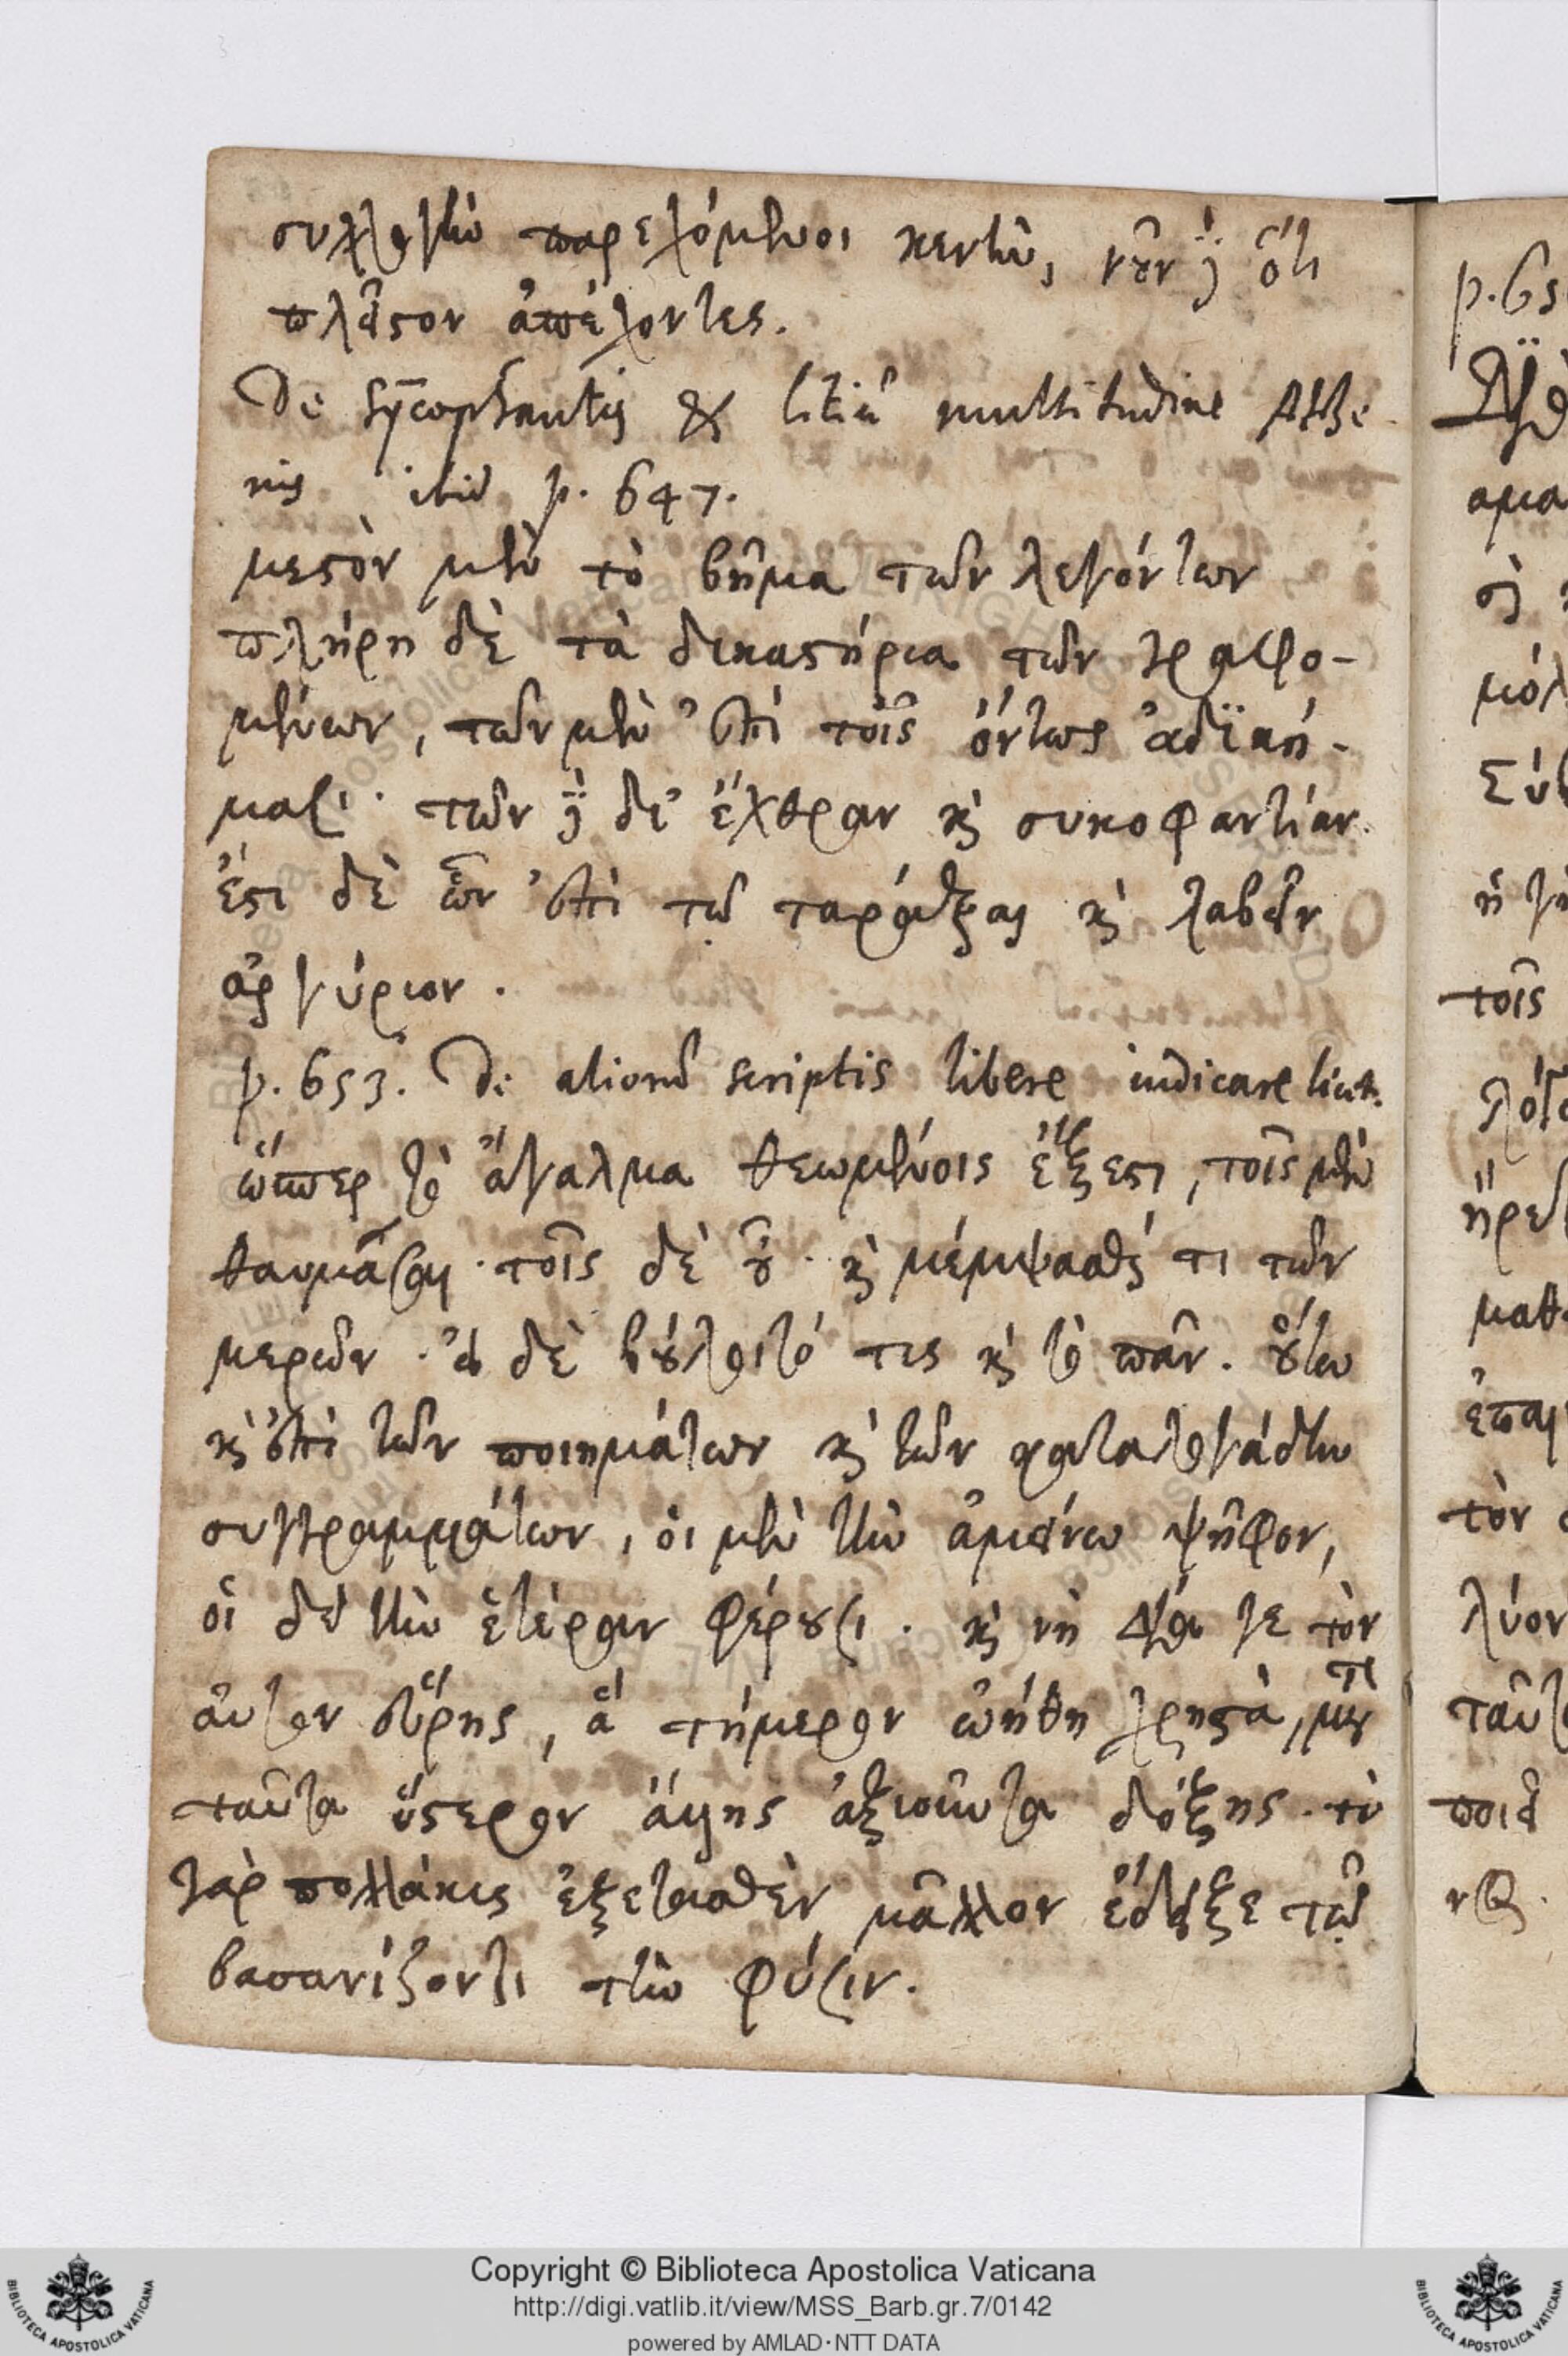 συχλὴν παρεχόμενοι κενὴν, νῦν δὲ ὅτι
πλεῖστον ἀπέχοντες.
De sycophantis & litiū multitudine Athe-
nis ibid p. 647.
μεστὸν μὲν τὸ βῆμα τῶν λεγόντων
πλήρη δὲ τὰ δικαστήρια τῶν γραφο-
μένων, τῶν μὲν ἐπὶ τοῖς ὄντως ἀδϊκή-
μασι· τῶν δὲ δι' ἔχθραν καὶ συκοφαντίαν.
ἔστι δὲ ὧν ἐπὶ τῷ ταράξαι καὶ λαβεῖν
ἀργύριον.
p. 653. De aliorū scriptis libere iudicare licet.
ὥσπερ τὸ ἄγαλμα θεωμένοις ἔξεστι, τοῖς μὲν
θαυμάσαι· τοῖς δὲ οὔ· καὶ μέμψασθαί τι τῶν
μερῶν· εἰ δὲ βούλοιτό τις καὶ τὸ πᾶν. οὕτω
καὶ ἐπὶ τῶν ποιημάτων καὶ τῶν καταλογάδην
συγγραμμάτων, οἱ μὲν τὴν ἀμείνω ψῆφον,
οἱ δὲ τὴν ἑτέραν φέρουσι. καὶ νὴ Δία γε τὸν
αὐτὸν εὕρης, ἃ τήμερον ᾠήθη χρηστὰ, μετὰ
τι
ταῦτα ὕστερον ἄλλης ἀξιοῦντα δόξης. τὸ
γὰρ πολλάκις ἐξετασθὲν, μᾶλλον ἔδειξε τῷ
βασανίζοντι τὴν φύσιν.
p. 65
αμα
μόλ
τοῖς
ἤρεσ
μαθ
ἐπαι
τὸν
λύον
ταῦτ
ποιεῖ
Copyright © Biblioteca Apostolica Vaticana
http://digi.vatlib.it/view/MSS_Barb.gr.7/0142
powered by AMLAD·NTT DATA
BIBLIOTECA APOSTOLICA VATICANA
BIBLIOTECA APOSTOLICA VATICANA